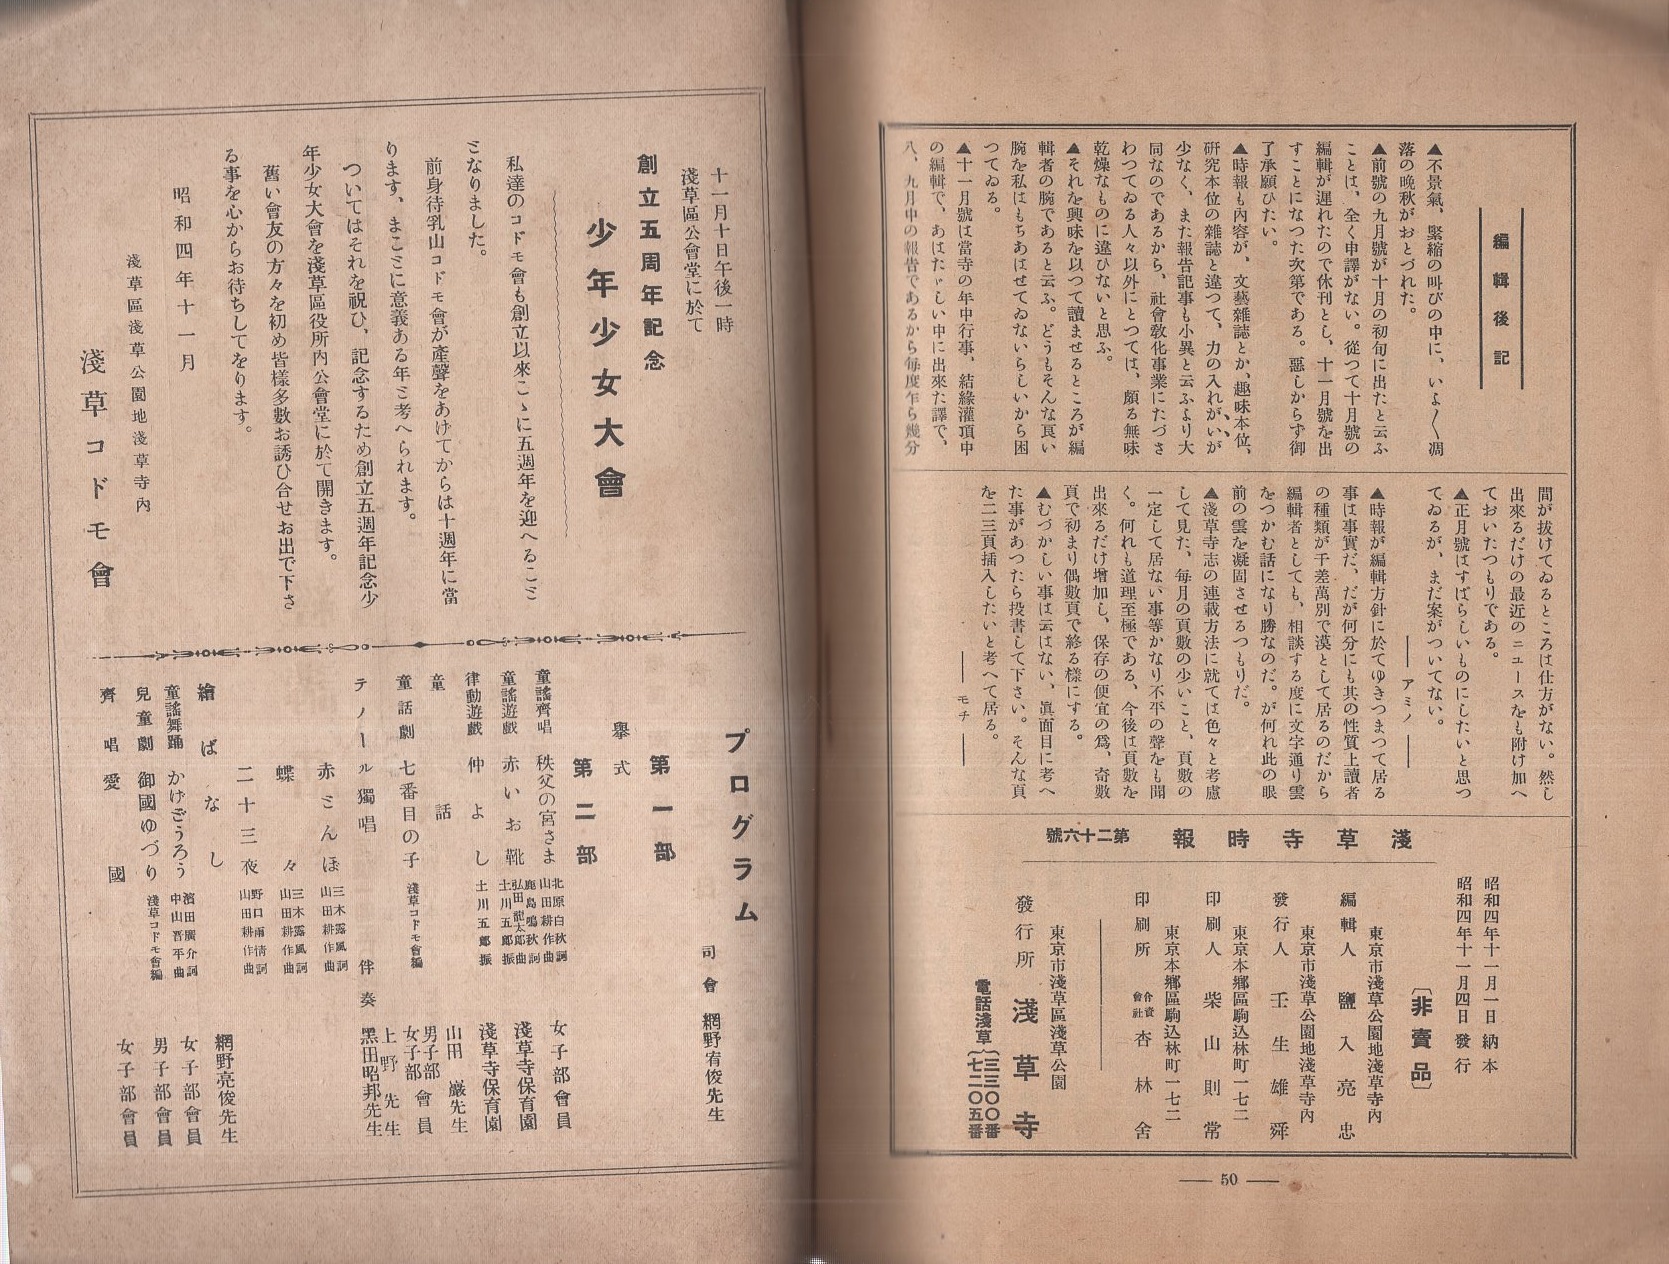 編輯後記
▲不景氣、緊縮の叫びの中に、いよ〳〵凋
落の晩秋がおとづれた。
▲前號の九月號が十月の初旬に出たと云ふ
ことは、全く申譯がない。從つて十月號の
編輯が遲れたので休刊とし、十一月號を出
すことになつた次第である。惡しからず御
了承願ひたい。
▲時報も内容が、文藝雜誌とか、趣味本位、
研究本位の雜誌と違つて、力の入れが、いが
少なく、また報告記事も小異と云ふより大
同なのであるから、社會敎化事業にたづさ
わつてゐる人々以外にとつては、頗る無味
乾燥なものに違ひないと思ふ。
▲それを興味を以つて讀ませるところが編
輯者の腕であると云ふ。どうもそんな良い
腕を私はもちあはせてゐないらしいから困
つてゐる。
▲十一月號は當寺の年中行事、結緣灌頂中
の編輯で、あはたゞしい中に出來た譯で、
八、九月中の報告であるから毎度乍ら幾分
間が拔けてゐるところは仕方がない。然し
出來るだけの最近のニュースをも附け加へ
ておいたつもりである。
▲正月號はすばらしいものにしたいと思つ
てゐるが、まだ案がついてない。
―― アミノ ――
▲時報が編輯方針に於てゆきつまつて居る
事は事實だ、だが何分にも其の性質上讀者
の種類が千差萬別で漠として居るのだから
編輯者としても、相談する度に文字通り雲
をつかむ話になり勝なのだ。が何れ此の眼
前の雲を凝固させるつもりだ。
▲淺草寺志の連載方法に就ては色々と考慮
して見た、毎月の頁數の少いこと、頁數の
一定して居ない事等かなり不平の聲をも聞
く。何れも道理至極である、今後は頁數を
出來るだけ增加し、保存の便宜の爲、奇數
頁で初まり偶數頁で終る樣にする。
▲むづかしい事は云はない、眞面目に考へ
た事があつたら投書して下さい。そんな頁
を二三頁插入したいと考へて居る。
―― モチ ――
淺草寺時報 第二十六號
昭和四年十一月一日 納本
昭和四年十一月四日 發行
〔非賣品〕
東京市淺草公園地淺草寺内
編輯人 鹽入亮忠
東京市淺草公園地淺草寺内
發行人 壬生雄舜
東京本鄕區駒込林町一七二
印刷人 柴山則常
東京本鄕區駒込林町一七二
印刷所 合資會社 杏林舍
東京市淺草區淺草公園
發行所 淺草寺
電話淺草{三三〇〇番
七二〇五番
― 50 ―
十一月十日午後一時
淺草區公會堂に於て
創立五周年記念
少年少女大會
私達のコドモ會も創立以來こゝに五週年を迎へるこミ
ミなりました。
前身待乳山コドモ會が產聲をあげてからは十週年に當
ります、まこミに意義ある年ミ考へられます。
ついてはそれを祝ひ、記念するため創立五週年記念少
年少女大會を淺草區役所内公會堂に於て開きます。
舊い會友の方々を初め皆樣多數お誘ひ合せお出で下さ
る事を心からお待ちしてをります。
昭和四年十一月
淺草區淺草公園地淺草寺内
淺草コドモ會
プログラム
司會 網野宥俊先生
第一部
擧式
第二部
童謠齊唱 秩父の宮さま 北原白秋詞 山田耕作曲 女子部會員
童謠遊戲 赤いお靴 鹿島鳴秋詞 弘田龍太郎曲 土川五郎振 淺草寺保育園
律動遊戲 仲よし 土川五郎振 淺草寺保育園
童話 山田巖先生
童話劇 七番目の子 淺草コドモ會編 男子部 女子部 會員
テノール獨唱 伴奏 上野先生 黑田昭邦先生
赤ミんぼ 三木露風詞 山田耕作曲
蝶々 三木露風詞 山田耕作曲
二十三夜 野口雨情詞 山田耕作曲
繪ばなし 網野亮俊先生
童謠舞踊 かげごうろう 濱田廣介詞 中山晋平曲 女子部會員
兒童劇 御國ゆづり 淺草コドモ會編 男子部會員
齊唱 愛國 女子部會員